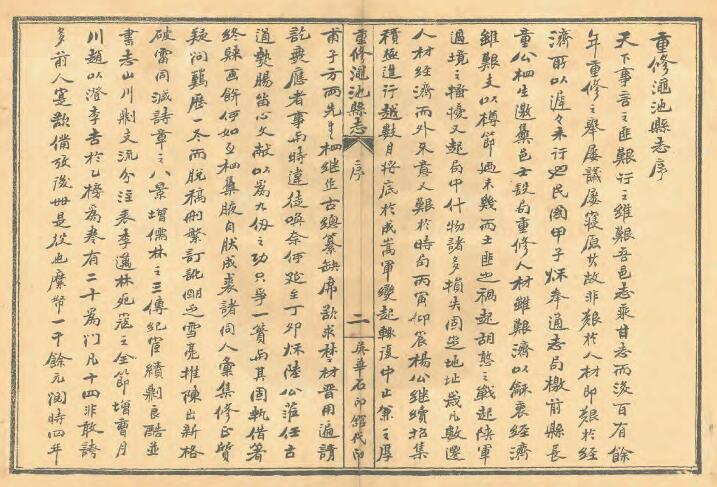 重修澠池縣志序
天下事言之匪艱行之維艱吾邑志乘甘志而後百有餘
年重修之舉屢議屢寢原其故非艱於人材即艱於經
濟所以遲々未行迨民國甲子秌奉通志局檄前縣長
童公栖生邀集邑士設局重修人材雖艱濟以龢衷經濟
雖艱支以樽節迺未幾而土匪之禍起胡憨之戰起陝軍
過境之擾又起局中什物諸多損失因坐地址歲凡數遷
人材經濟而外又責人艱於時句丙寅仰宸楊公繼續招集
積極進行越數月將底於成嵩軍變起輒復中止兼之厚
甫子方兩先生相繼作古總纂缺席欲求楚材晋用遍請
訖無應者事與時違徒喚奈何延至丁卯秌陸公蒞任古
道熱腸留心文献以為九仭之功只爭一簣而其困軌借箸
終躲画餅何如自相集腋自狀成裘諸同人彙集修正質
疑問難歷一冬而脱稿刪繁訂訛朗之雪亮推陳出新格
破雷同滅詩章之八景增儒林之三傳紀宦績剔良酷並
書志山川剔支流分注表季邁林宛寇之全節增曹月
川趙以澄李吉於乙榜為卷有二十為門凡十四非敢誇
多前人寔欲備攷後世是役也縻幣一千餘元閱時四年
重修澠池縣志
序
二
英華石印館代印